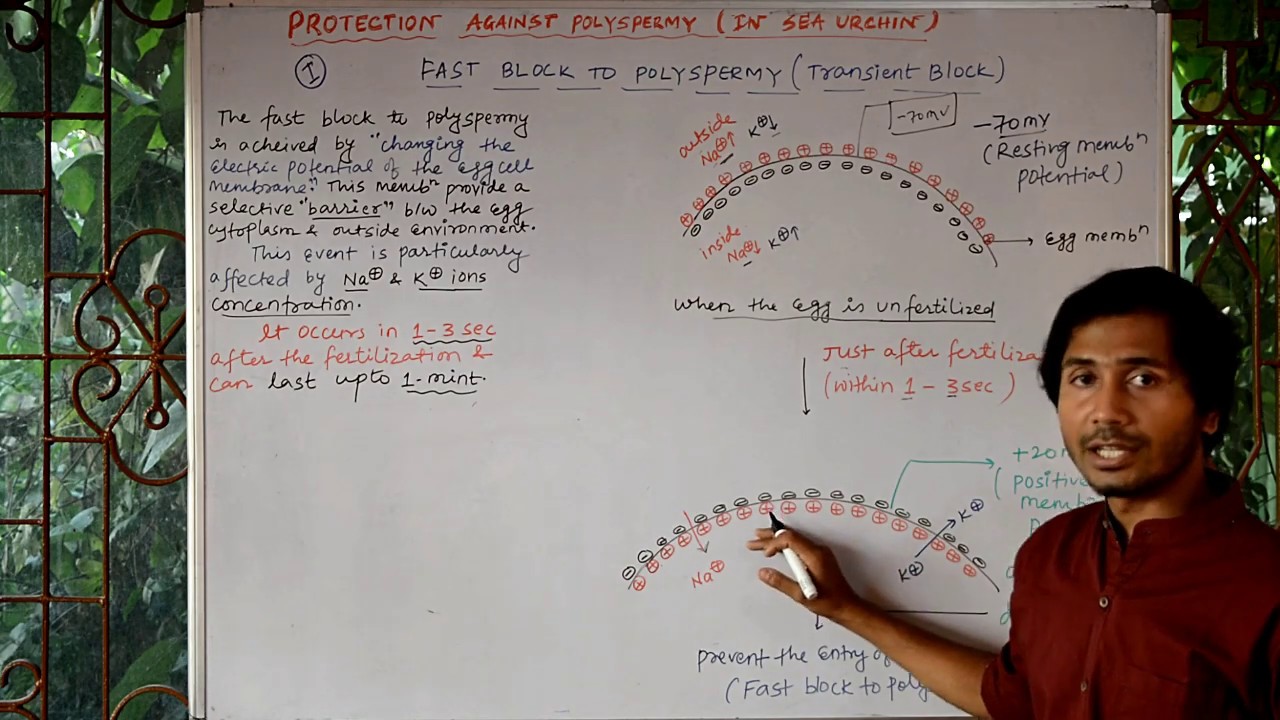 PROTECTION AGAINST POLYSPERMY (IN SEA URCHIN)
I FAST BLOCK TO POLYSPERMY (Transient Block)
The fast block to polyspermy
is acheived by "changing the
electric potential of the egg cell
membrane." This membⁿ provide a
selective "barrier" b/w the egg
cytoplasm & outside environment.
This event is particularly
affected by Na⊕ & K⊕ ions
concentration.
It occurs in 1-3 sec
after the fertilization &
can last upto 1-mint.
outside
Na⊕↑ K⊕↓
-70mV
-70mV
(Resting membⁿ
potential)
inside
Na⊕↓ K⊕↑
Egg membⁿ
when the egg is unfertilized
Just after
(within 1 - 3 sec)
(positive
Na⊕
K⊕
K⊕
prevent the entry
(Fast block to